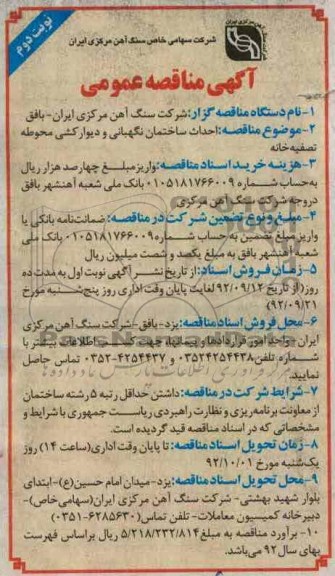 سنگ آهن مرکزی ایران
نوبت دوم
شرکت سهامی خاص سنگ آهن مرکزی ایران
آگهی مناقصه عمومی
۱-نام دستگاه مناقصه گزار:شرکت سنگ آهن مرکزی ایران-بافق
۲-موضوع مناقصه:احداث ساختمان نگهبانی و دیوارکشی محوطه
تصفیه‌خانه
۳-هزینه خرید اسناد مناقصه:واریز مبلغ چهارصد هزار ریال
به‌حساب شماره ۰۱۰۵۱۸۱۷۶۶۰۰۹ بانک ملی شعبه آهنشهر بافق
دروجه شرکت سنگ آهن مرکزی
۴-مبلغ و نوع تضمین شرکت در مناقصه: ضمانت‌نامه بانکی یا
واریز مبلغ تضمین به حساب شماره ۰۱۰۵۱۸۱۷۶۶۰۰۹ بانک ملی
شعبه آهنشهر بافق به مبلغ یکصد و شصت میلیون ریال
۵-زمان فروش اسناد:از تاریخ نشر آگهی نوبت اول به‌مدت ده
روز(از تاریخ ۹۲/۰۹/۱۲ لغایت پایان وقت اداری روز پنج‌شنبه مورخ
۹۲/۰۹/۲۱)
۶-محل فروش اسناد مناقصه:یزد-بافق-شرکت سنگ آهن مرکزی
ایران-واحد امور قراردادها و پیمانها، جهت کسب اطلاعات بیشتر با
شماره تلفن ۰۳۵۲۴۲۵۴۴۳۸ و ۴۲۵۴۴۳۷-۰۳۵۲ تماس حاصل
نمایید.
۷-شرایط شرکت در مناقصه:داشتن حداقل رتبه ۵ رشته ساختمان
از معاونت برنامه‌ریزی و نظارت راهبردی ریاست جمهوری با شرایط و
مشخصاتی که در اسناد مناقصه قید گردیده است.
۸-زمان تحویل اسناد مناقصه:تا پایان وقت اداری(ساعت ۱۴) روز
یک‌شنبه مورخ ۹۲/۱۰/۰۱
۹-محل تحویل اسناد مناقصه:یزد-میدان امام حسین(ع)-ابتدای
بلوار شهید بهشتی- شرکت سنگ آهن مرکزی ایران(سهامی‌خاص)-
دبیرخانه کمیسیون معاملات- تلفن تماس(۶۲۸۵۶۳۰-۰۳۵۱)
۱۰- برآورد مناقصه به مبلغ ۵/۲۱۸/۲۳۲/۸۱۴ ریال براساس فهرست
بهای سال ۹۲ می‌باشد.